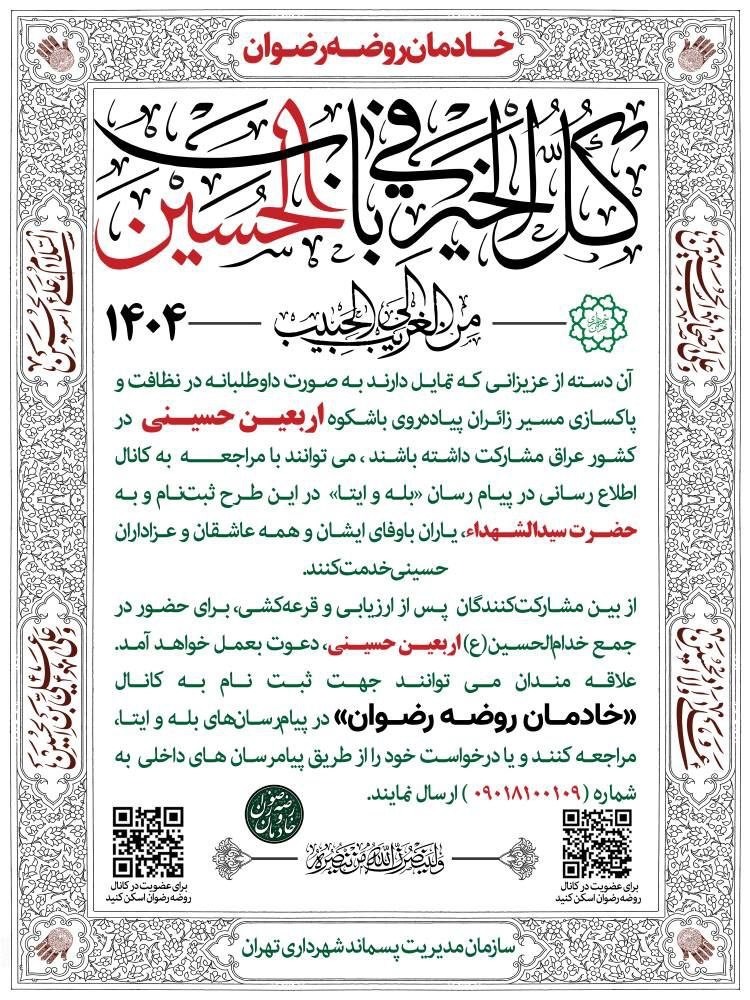 خادمان روضه رضوان
كُلُّ الخَیر في باب الحُسین
مِنَ الغَریبِ إلَی الحَبیب
۱۴۰۴
آن دسته از عزیزانی که تمایل دارند به صورت داوطلبانه در نظافت و
پاکسازی مسیر زائران پیاده‌روی باشکوه اربعین حسینی در
کشور عراق مشارکت داشته باشند ، می توانند با مراجعه به کانال
اطلاع رسانی در پیام رسان «بله و ایتا» در این طرح ثبت‌نام و به
حضرت سیدالشهداء، یاران باوفای ایشان و همه عاشقان و عزاداران
حسینی خدمت کنند.
از بین مشارکت‌کنندگان پس از ارزیابی و قرعه‌کشی، برای حضور در
جمع خدام‌الحسین(ع) اربعین حسینی، دعوت بعمل خواهد آمد.
علاقه مندان می توانند جهت ثبت نام به کانال
«خادمان روضه رضوان» در پیام‌رسان‌های بله و ایتا،
مراجعه کنند و یا درخواست خود را از طریق پیامرسان های داخلی به
شماره ( ۰۹۰۱۸۱۰۰۱۰۹ ) ارسال نمایند.
خادمان روضه رضوان
وَلَیَنصُرَنَّ اللهُ مَن یَنصُرُهُ
برای عضویت در کانال
روضه رضوان اسکن کنید
برای عضویت در کانال
روضه رضوان اسکن کنید
سازمان مدیریت پسماند شهرداری تهران